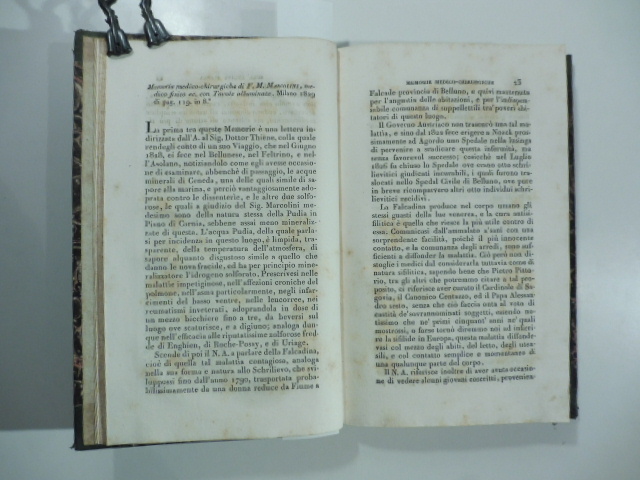 Memorie medico-chirurgiche di F. M. Marcolini, me-
dico fisico ec. con Tavole alluminate. Milano 1829
di pag. 119. in 8.°
La prima tra queste Memorie è uno lettera in-
dirizzata dall'A. al Sig. Dottor Thiène, colla quale
rendegli conto di un suo Viaggio, che nel Giugno
1828, fece nel Bellunese, nel Feltrino, e nel-
l'Asolano, notiziandolo come egli avesse occasione
di esaminare, abbenchè di passaggio, le acque
minerali di Ceneda, una delle quali simile di sa-
pore alla marina, e perciò vantaggiosamente ado-
prata contro le dissenterie, e le altre due solfo-
rose, le quali a giudizio del Sig. Marcolini me-
desimo sono della natura stessa della Pudia in
Piano di Carnia, sebbene assai meno mineraliz-
zate di questa. L'acqua Pudia, della quale parla-
si per incidenza in questo luogo, è limpida, tra-
sparente, della temperatura dell'atmosfera, di
sapore alquanto disgustoso simile a quello che
danno le nova fracide, ed ha per principio mine-
ralizzatore l'idrogeno solforato. Prescrivesi nelle
malattie impetiginose, nell'affezioni croniche del
polmone, nell'asma particolarmente, negli infar-
cimenti del basso ventre, nelle leucorree, nei
reumatismi inveterati, adoprandola in dose di
un mezzo bicchiere fino a tre, da beversi sul
luogo ove scaturisce, e a digiuno; analoga dun-
que nell'efficacia alle riputatissime solforose fred-
de di Enghien, di Roche-Possy, e di Uriage.
Scende di poi il N. A. a parlare della Falcadina,
cioè di quella tal malattia contagiosa, analoga
nella sua forma e natura allo Schrilievo, che svi-
lupposi fino dall'anno 1790, trasportata proba-
bilissimamente da una donna reduce da Fiume a
MEMORIE MEDICO-CHIRURGICHE
Falcade provincia di Belluno, e quivi mantenuta
per l'angustia delle abitazioni, e per l'indispen-
sabile comunanza di suppellettili tra' poveri abi-
tatori di questo luogo.
Il Governo Austriaco non trascurò una tal ma-
lattia, e sino dal 1822 fece erigere a Noach pros-
simamente ad Agordo uno Spedale nella lusinga
di pervenire a sradicare questa infermità, ma
senza favorevol successo; cosicchè nel Luglio
1826 fu chiuso lo Spedale ove erano otto schri-
lievitici giudicati incurabili, i quali furono tras-
locati nello Spedal Civile di Belluno, ove pure
in breve ricomparvero altri otto individui schri-
lievitici recidivi.
La Falcadina produce nel corpo umano gli
stessi guasti della lue venerea, e la cura antisi-
filitica è quella che riesce la più utile contro di
essa. Comunicasi dall'ammalato a' sani con una
sorprendente facilità, poichè il più innocente
contatto, e la comunanza degli arredi, sono suf-
ficienti a diffonder la malattia. Ciò però non di-
stoglie i medici dal considerarla tuttavia come di
natura sifilitica, sapendo bene che Pietro Pinta-
rio, tra gli altri che potremmo citare a tal pro-
posito, ci riferisce aver curato il Cardinale di Se-
govia, il Canonico Centasso, ed il Papa Alessan-
dro sesto, senza che ciò faccia onta al voto di
castità de' sovrannominati soggetti, essendo no-
tissimo che ne' primi cinquant'anni ne' quali
mostrossi, o forse tornò diremmo noi ad inferi-
re la sifilide in Europa, questa malattia diffonde-
vasi col mezzo degli abiti, del letto, degli uten-
sili, e col contatto semplice e momentaneo di
una qualunque parte del corpo.
Il N. A. riferisce inoltre di aver avuto occasio-
ne di vedere alcuni giovani coscritti, provenien-